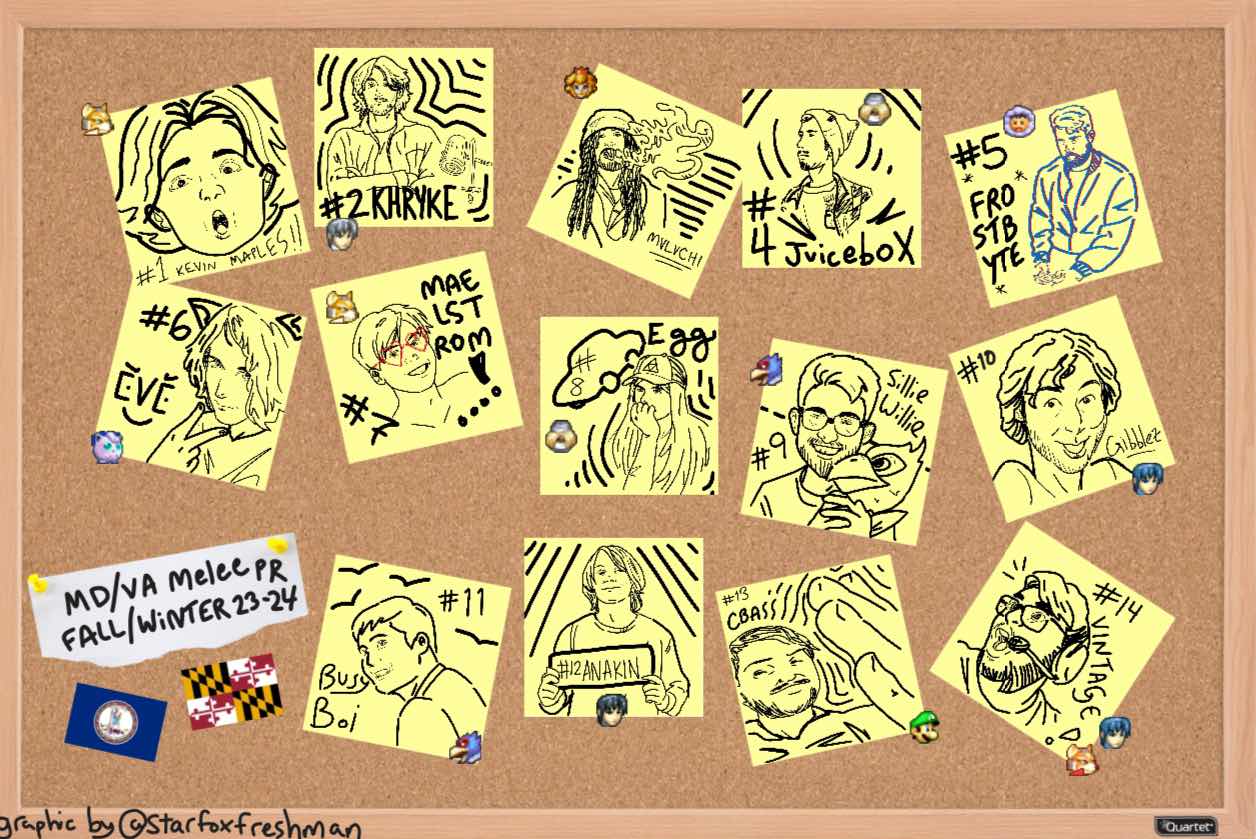 #1 KEVIN MAPLES!!
#2 KHRYKE
MVLVCHI
#
4 JuiceboX
#5
FRO
STB
YTE
#6
ĔVĔ
MAE
LST
ROM
!
#7
Egg
#
8
Sillie
Willie
#9
#10
Gibblez
MD/VA Melee PR
FALL/WINTER 23-24
#11
Busy
Boi
#12 ANAKIN
#13
CBASS
#14
VINTAGE
graphic by @starfoxfreshman
Quartet